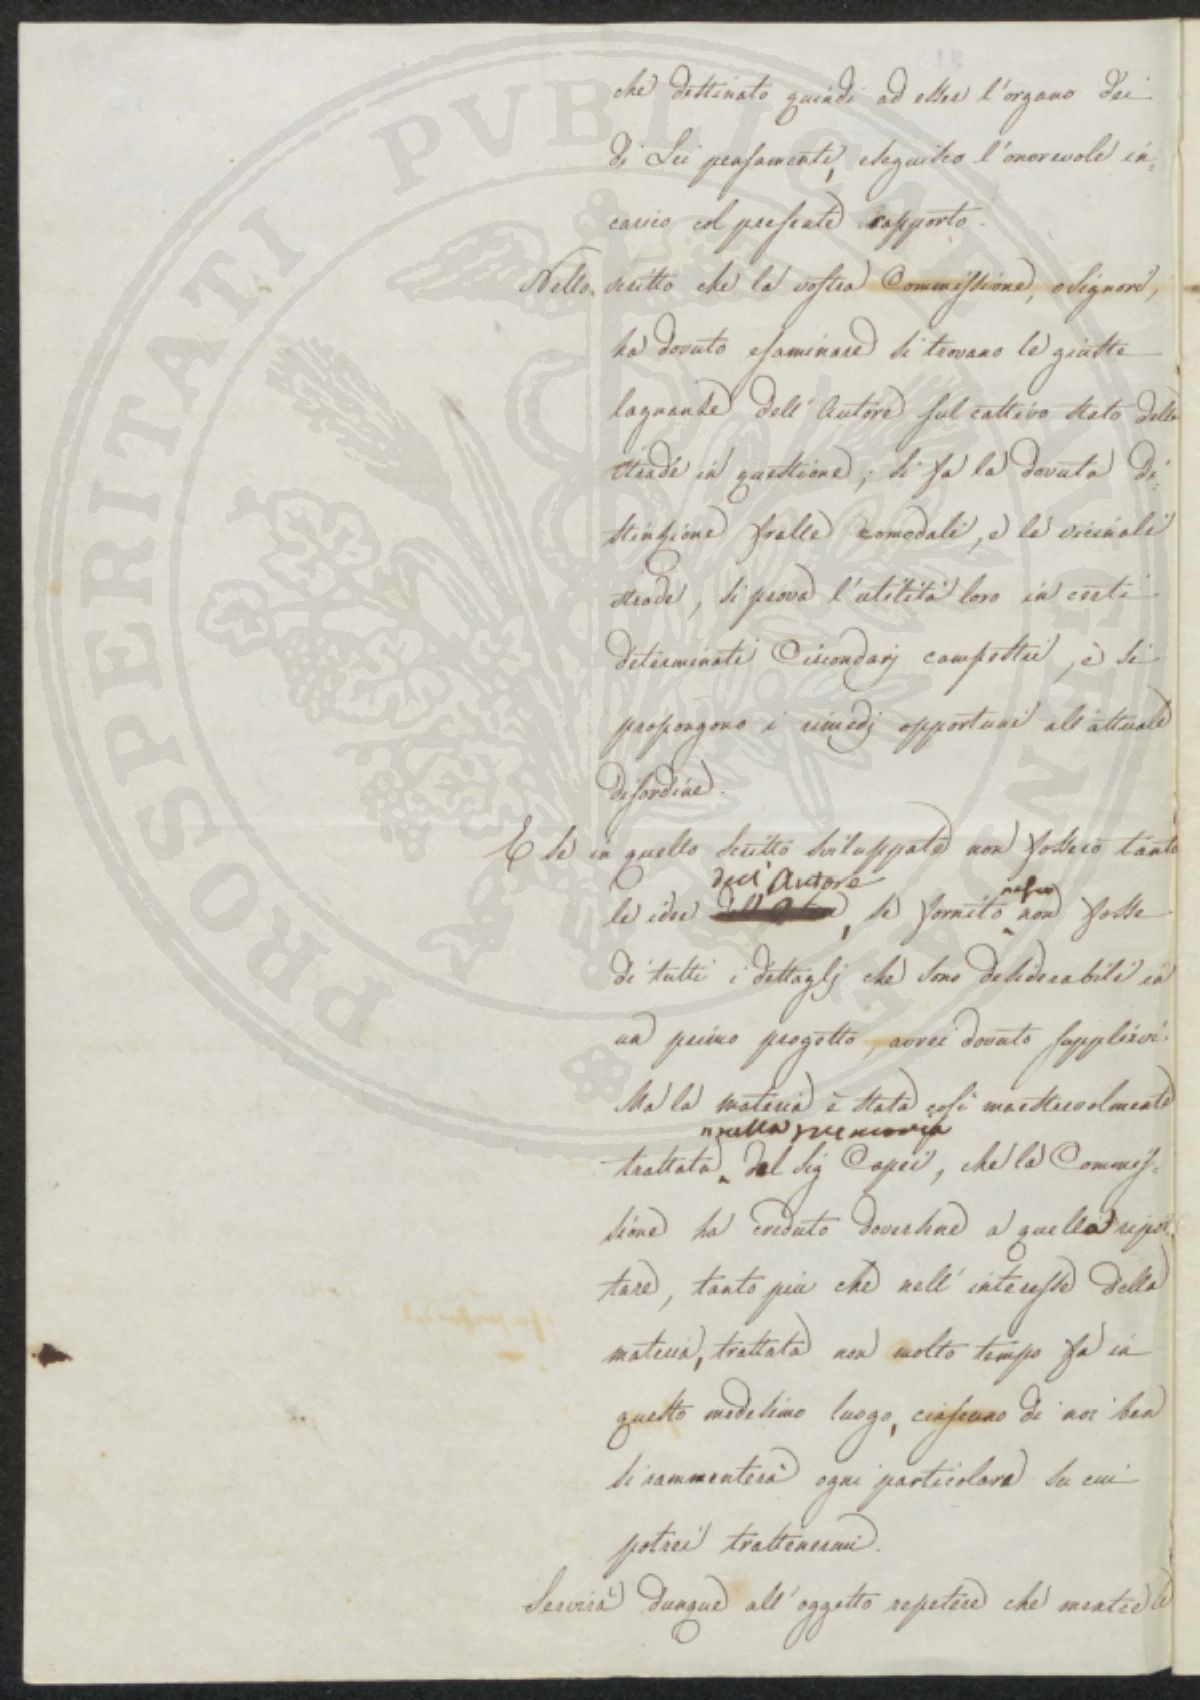 che destinato quindi ad esser l'organo dei
di Lei pensamenti, eseguisco l'onorevole in-
carico col presente rapporto.
Nello scritto che la vostra Commissione, o Signori,
ha dovuto esaminare si trovano le giuste
lagnanze dell'Autore sul cattivo stato delle
strade in questione; si fa la dovuta di-
stinzione fralle comodali, e le vicinali
strade, si prova l'utilità loro in certi
determinati Circondarj campestri, e si
propongono i rimedj opportuni all'attuale
disordine.
E se in quello scritto sviluppate non fossero tanto
dell'Autore
le idee, se fornito non fosse
di tutti i dettaglj che sono desiderabili in
un primo progetto, avrei dovuto supplirvi.
Ma la materia è stata così maestrevolmente
nella memoria
trattata del Sig Capei, che la Commis-
sione ha creduto doversene a quella ripor-
tare, tanto più che nell'interesse della
materia, trattata non molto tempo fa in
questo medesimo luogo, ciascuno di noi ben
si rammenterà ogni particolare su cui
potrei trattenermi.
Servirà dunque all'oggetto repetere che mentre le
PROSPERITATI PUBLICAE AUGENDAE